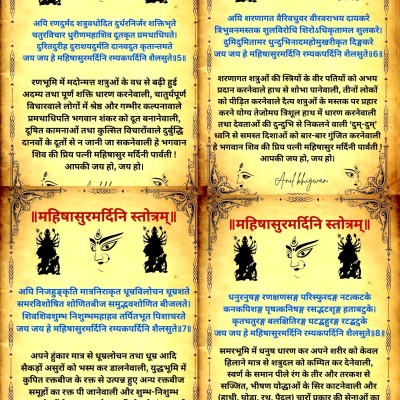 अयि रणदुर्मद शत्रुवधोदित दुर्धरनिर्जर शक्तिभृते
चतुरविचार धुरीणमहाशिव दूतकृत प्रमथाधिपते।
दुरितदुरीह दुराशयदुर्मति दानवदुत कृतान्तमते
जय जय हे महिषासुरमर्दिनि रम्यकपर्दिनि शैलसुते॥5॥
रणभूमि में मदोन्मत्त शत्रुओं के वध से बढ़ी हुई
अदम्य तथा पूर्ण शक्ति धारण करनेवाली, चातुर्यपूर्ण
विचारवाले लोगों में श्रेष्ठ और गम्भीर कल्पनावाले
प्रमथाधिपति भगवान शंकर को दूत बनानेवाली,
दूषित कामनाओं तथा कुत्सित विचारोंवाले दुर्बुद्धि
दानवों के दूतों से न जानी जा सकनेवाली हे भगवान
शिव की प्रिय पत्नी महिषासुर मर्दिनी पार्वती !
आपकी जय हो, जय हो।
अयि शरणागत वैरिवधुवर वीरवराभय दायकरे
त्रिभुवनमस्तक शुलविरोधि शिरोऽधिकृतामल शुलकरे।
दुमिदुमितामर धुन्दुभिनादमहोमुखरीकृत दिङ्मकरे
जय जय हे महिषासुरमर्दिनि रम्यकपर्दिनि शैलसुते॥6॥
शरणागत शत्रुओं की स्त्रियों के वीर पतियों को अभय
प्रदान करनेवाले हाथ से शोभा पानेवाली, तीनों लोकों
को पीड़ित करनेवाले दैत्य शत्रुओं के मस्तक पर प्रहार
करने योग्य तेजोमय त्रिशूल हाथ में धारण करनेवाली
तथा देवताओं की दुन्दुभि से निकलने वाली 'दुम्-दुम्'
ध्वनि से समस्त दिशाओं को बार-बार गुंजित करनेवाली
हे भगवान शिव की प्रिय पत्नी महिषासुर मर्दिनी पार्वती !
आपकी जय हो, जय हो।
Anil bhigwan
॥महिषासुरमर्दिनि स्तोत्रम्॥
अयि निजहुङ्कृति मात्रनिराकृत धूम्रविलोचन धूम्रशते
समरविशोषित शोणितबीज समुद्भवशोणित बीजलते।
शिवशिवशुम्भ निशुम्भमहाहव तर्पितभूत पिशाचरते
जय जय हे महिषासुरमर्दिनि रम्यकपर्दिनि शैलसुते॥7॥
अपने हुंकार मात्र से धूम्रलोचन तथा धूम्र आदि
सैकड़ों असुरों को भस्म कर डालनेवाली, युद्धभूमि में
कुपित रक्तबीज के रक्त से उत्पन्न हुए अन्य रक्तबीज
समूहों का रक्त पी जानेवाली और शुम्भ-निशुम्भ
॥महिषासुरमर्दिनि स्तोत्रम्॥
धनुरनुषङ्ग रणक्षणसङ्ग परिस्फुरदङ्ग नटत्कटके
कनकपिशङ्ग पृषत्कनिषङ्ग रसद्भटशृङ्ग हताबटुके।
कृतचतुरङ्ग बलक्षितिरङ्ग घटद्बहुरङ्ग रटद्बटुके
जय जय हे महिषासुरमर्दिनि रम्यकपर्दिनि शैलसुते॥8॥
समरभूमि में धनुष धारण कर अपने शरीर को केवल
हिलाने मात्र से शत्रुदल को कम्पित कर देनेवाली,
स्वर्ण के समान पीले रंग के तीर और तरकश से
सज्जित, भीषण योद्धाओं के सिर काटनेवाली और
(हाथी, घोड़ा, रथ, पैदल) चारों प्रकार की सेनाओं का